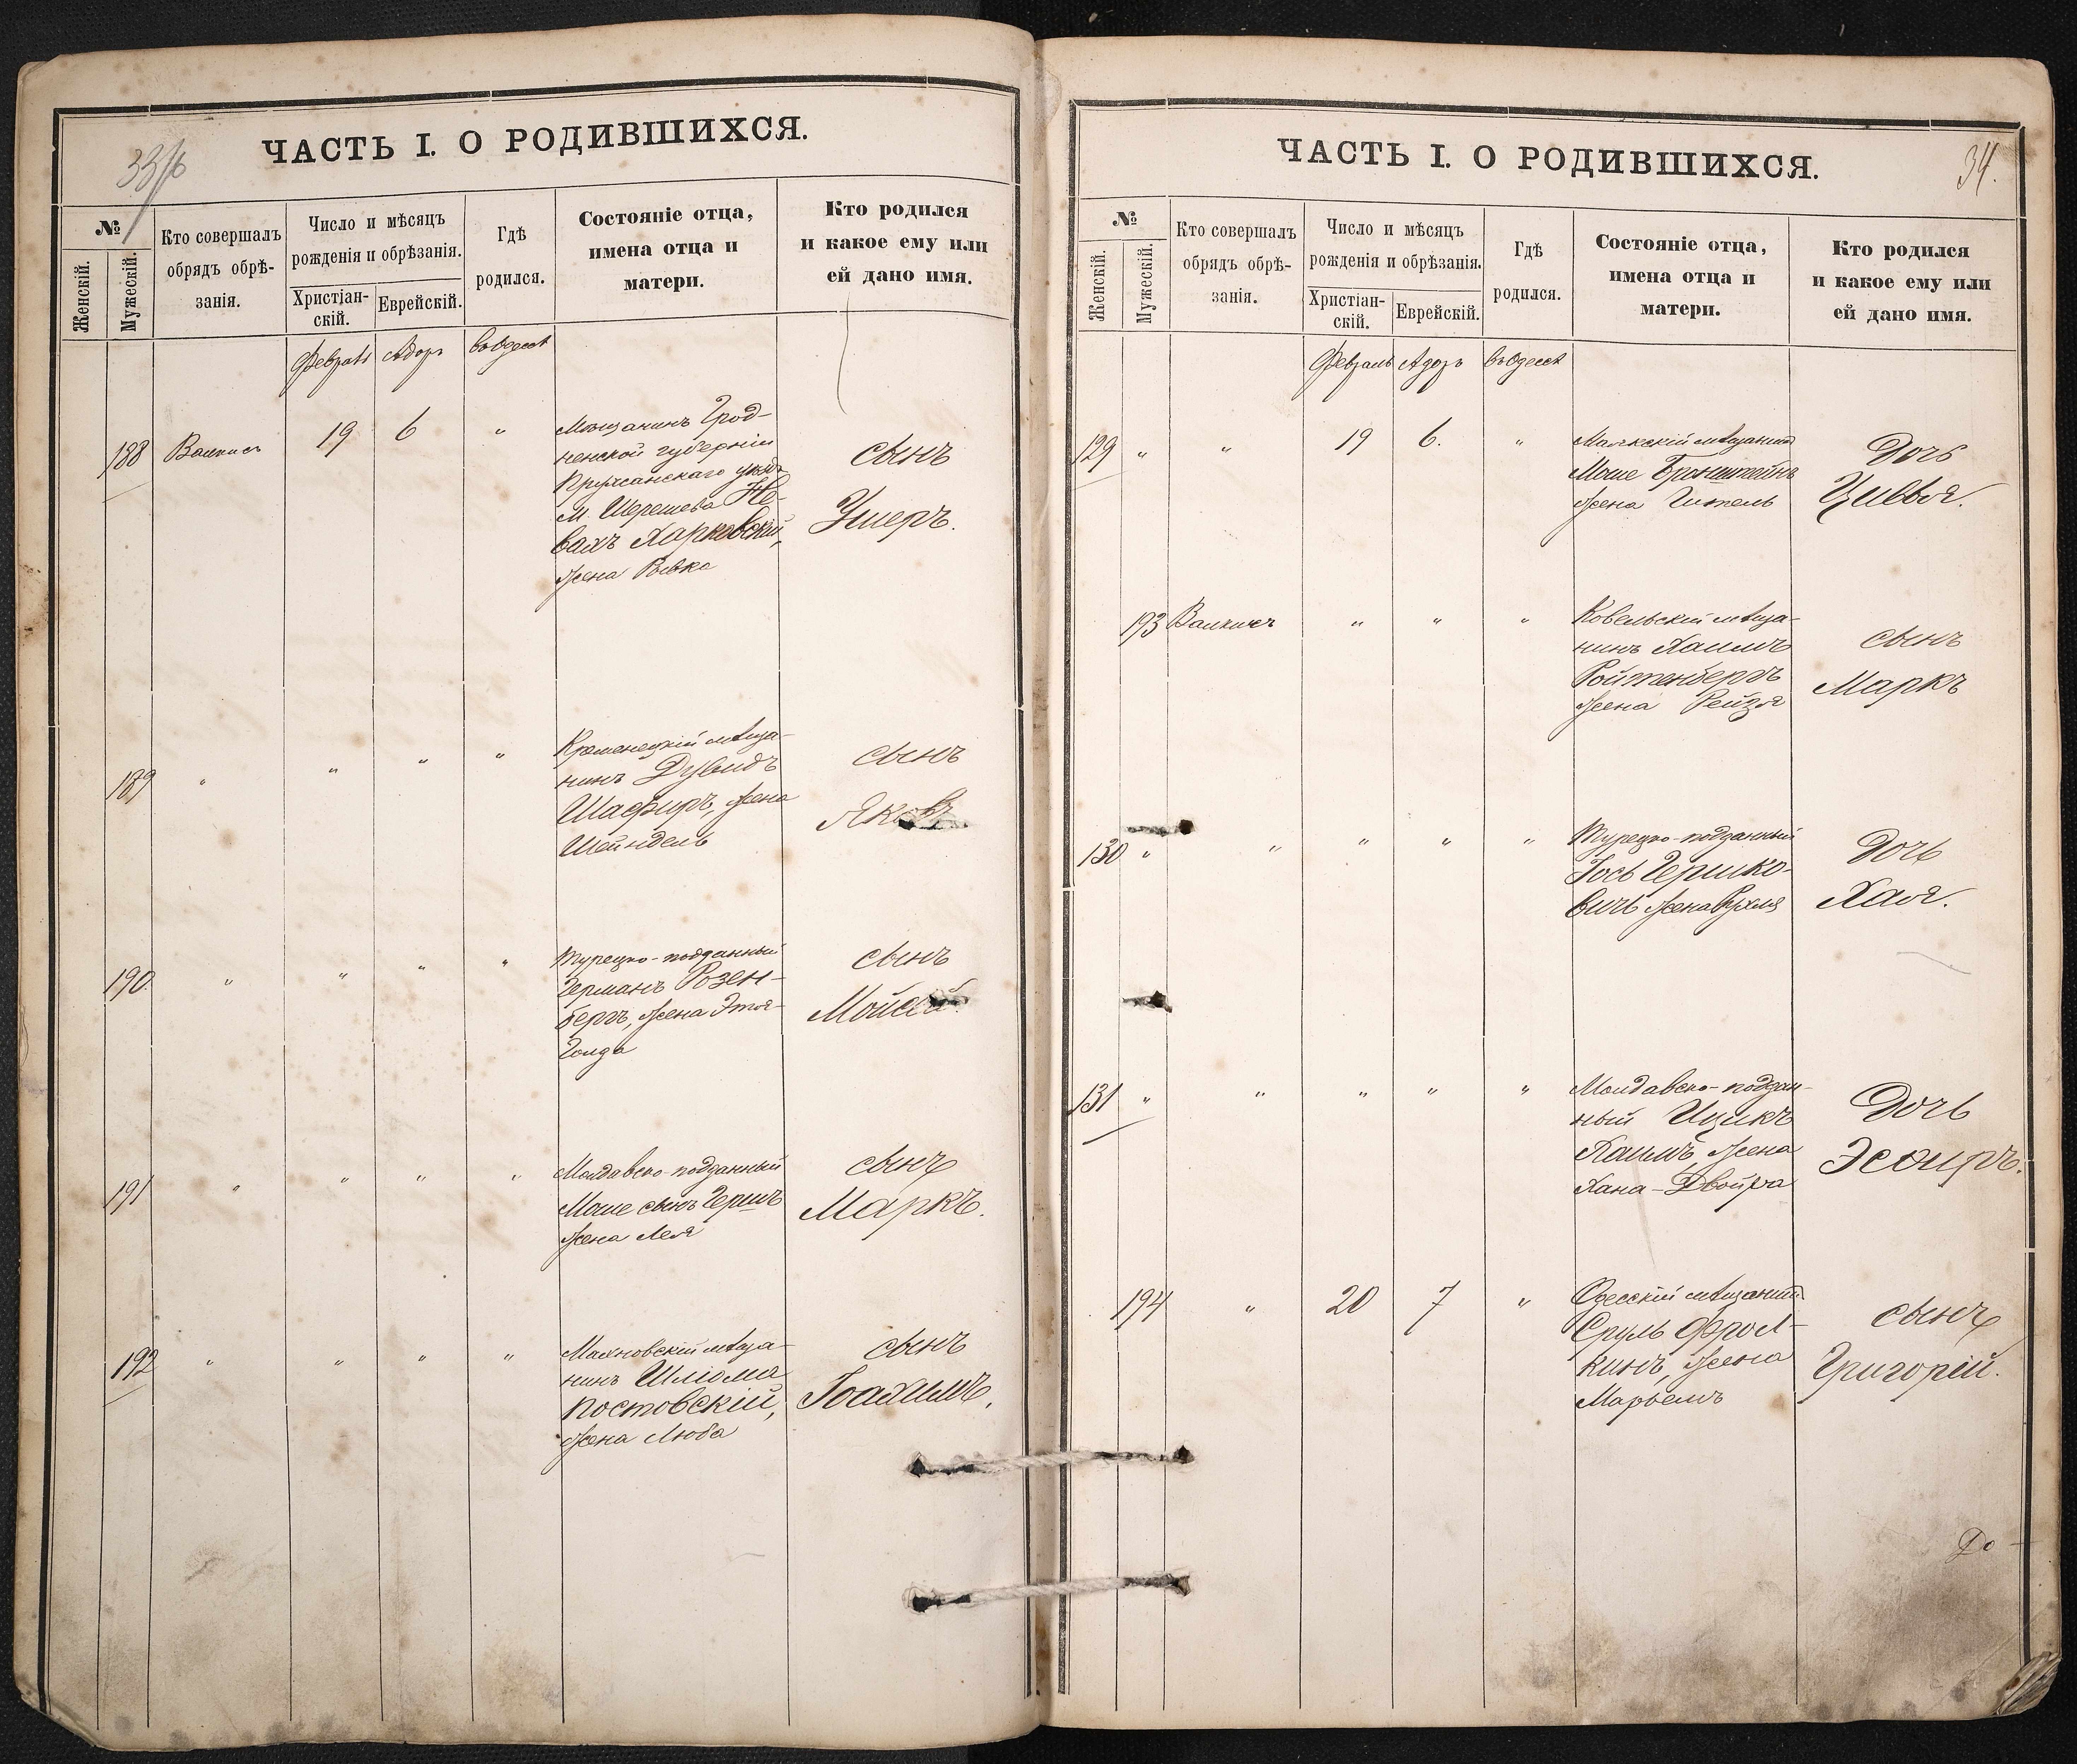 33/б
ЧАСТЬ I. О РОДИВШИХСЯ.
№
Женскій.
Мужескій.
Кто совершалъ
обрядъ обрѣ-
занія.
Число и мѣсяцъ
рожденія и обрѣзанія.
Христіан-
скій.
Еврейскій.
Гдѣ
родился.
Состояніе отца,
имена отца и
матери.
Кто родился
и какое ему или
ей дано имя.
Февраль Адоръ въ Одессѣ
188 19 6 "
Мѣщанинъ Грод-
ненской губерніи
Пружанскаго уѣзда
М. Шерешева Не-
вахъ Харковскій,
жена Ривка
сынъ
Ушеръ.
189 " " " "
Кременецкій мѣща-
нинъ Дувидъ
Шафиръ, жена
Шейндель
сынъ
Яковъ
190 " " " "
Турецко-подданный
Германъ Розен-
бергъ, жена Этя-
Голда
сынъ
Мойсей.
191 " " " "
Молдавско-подданный
Моше сынъ Гершъ
жена Лея
сынъ
Маркъ.
192 " " " "
Махновскій мѣща-
нинъ Шлиома
Постовскій,
жена Люба
сынъ
Іоахимъ.
34.
ЧАСТЬ I. О РОДИВШИХСЯ.
№
Женскій.
Мужескій.
Кто совершалъ
обрядъ обрѣ-
занія.
Число и мѣсяцъ
рожденія и обрѣзанія.
Христіан-
скій.
Еврейскій.
Гдѣ
родился.
Состояніе отца,
имена отца и
матери.
Кто родился
и какое ему или
ей дано имя.
Февраль Адоръ въ Одессѣ
129 " " 19 6. "
мѣщанинъ
Моше Бронштейнъ
жена Гитель
Дочь
Цивья.
193 " " "
Ковельскій мѣща-
нинъ Хаимъ
Ройтенбергъ
жена Рейзя
сынъ
Маркъ
130 " " " " "
Турецко-подданный
Іось Гершко-
вичъ жена Рухля
Дочь
Хая.
131 " " " " "
Молдавско-поддан-
ный Ицикъ
Хаимъ жена
Хана-Двойра
Дочь
Эсѳиръ.
194 " 20 7 "
Одесскій мѣщанинъ
Сруль Фрол-
кинъ, жена
Марьемъ
сынъ
Григорій.
До-